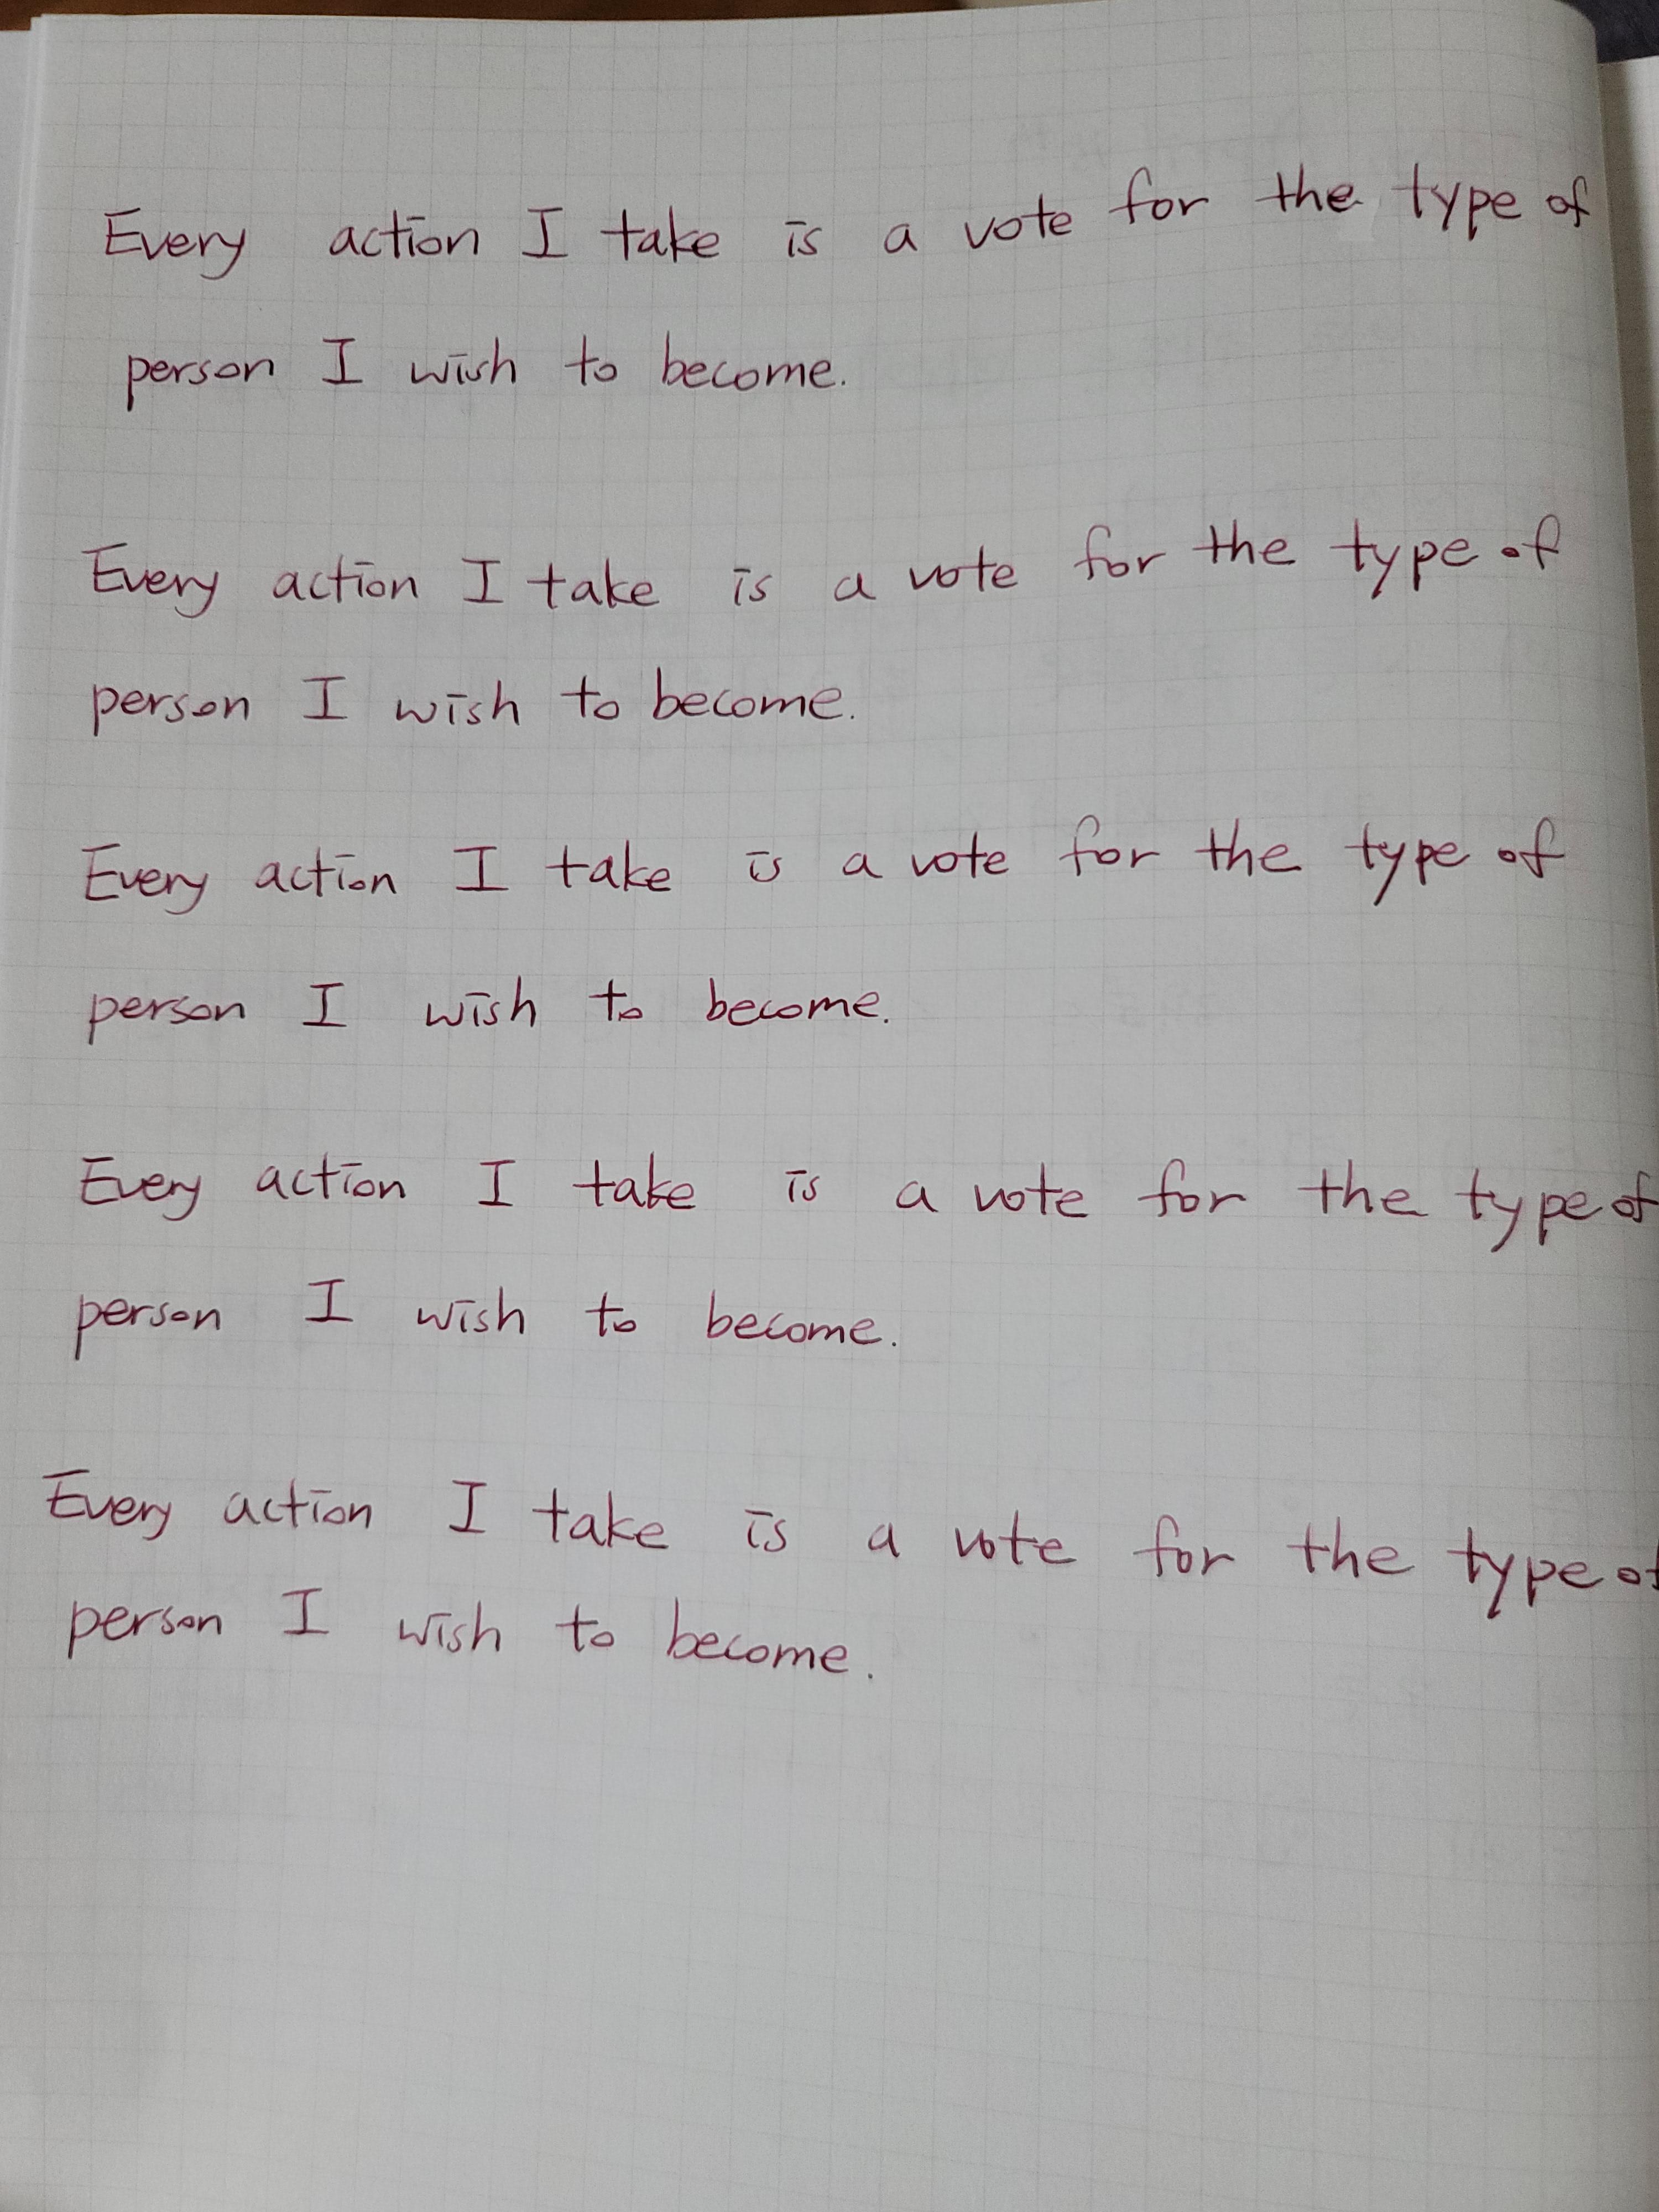 Every action I take is a vote for the type of
person I wish to become.
Every action I take is a vote for the type of
person I wish to become.
Every action I take is a vote for the type of
person I wish to become.
Every action I take is a vote for the type of
person I wish to become.
Every action I take is a vote for the type of
person I wish to become.